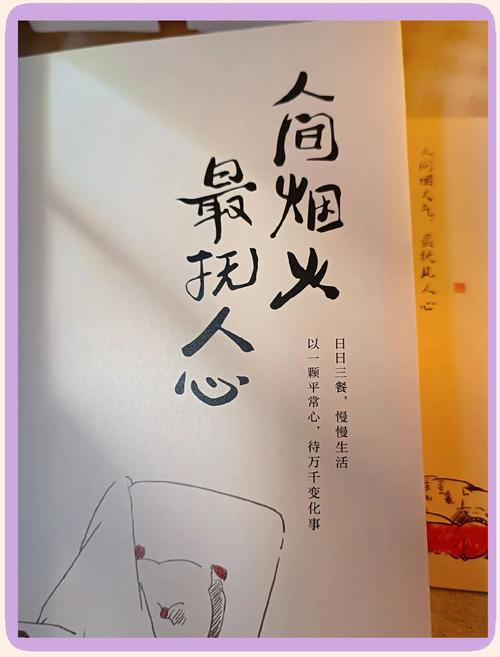 人间烟火
最抚人心
日日三餐，慢慢生活
以一颗平常心，待万千变化事
人间烟火气，最抚凡人心